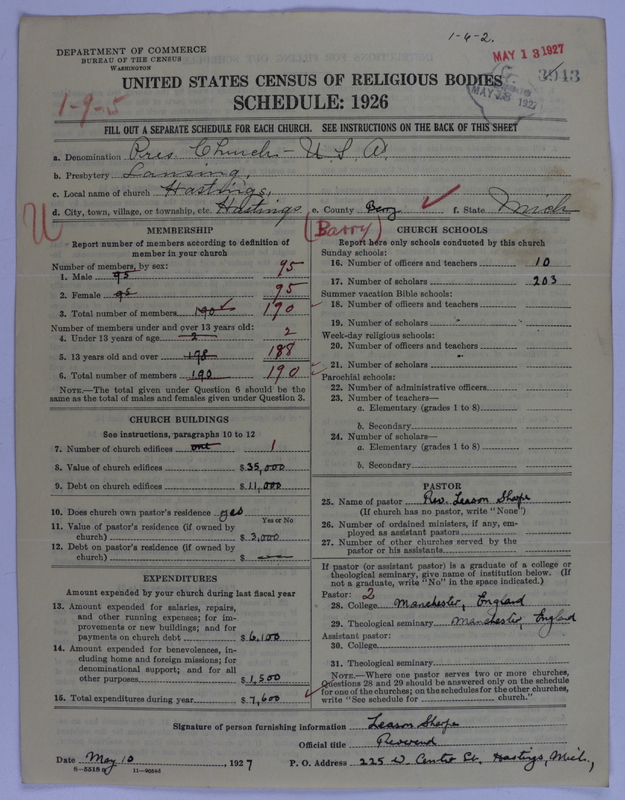 1-4-2.
DEPARTMENT OF COMMERCE
BUREAU OF THE CENSUS
WASHINGTON
MAY 13 1927
3943
UNITED STATES CENSUS OF RELIGIOUS BODIES
MAY 1927
1-9-5
SCHEDULE: 1926
FILL OUT A SEPARATE SCHEDULE FOR EACH CHURCH. SEE INSTRUCTIONS ON THE BACK OF THIS SHEET
a. Denomination Pres. Church - U.S.A.
b. Presbytery Lansing,
c. Local name of church Hastings,
d. City, town, village, or township, etc. Hastings e. County Barry f. State Mich
U
(Barry)
MEMBERSHIP
Report number of members according to definition of
member in your church
Number of members, by sex:
1. Male 95 95
2. Female 95 95
3. Total number of members 190 190
Number of members under and over 13 years old:
4. Under 13 years of age 2 2
5. 13 years old and over 198 188
6. Total number of members 190 190
NOTE.—The total given under Question 6 should be
same as the total of males and females given under Question 3.
CHURCH BUILDINGS
See instructions, paragraphs 10 to 12
7. Number of church edifices one 1
8. Value of church edifices $ 35,000
9. Debt on church edifices $ 11,000
10. Does church own pastor's residence yes
Yes or No
11. Value of pastor's residence (if owned by
church) $ 3,000
12. Debt on pastor's residence (if owned by
church) $
EXPENDITURES
Amount expended by your church during last fiscal year
13. Amount expended for salaries, repairs,
and other running expenses; for im-
provements or new buildings; and for
payments on church debt $ 6,100
14. Amount expended for benevolences, in-
cluding home and foreign missions; for
denominational support; and for all
other purposes $ 1,500
15. Total expenditures during year $ 7,600
CHURCH SCHOOLS
Report here only schools conducted by this church
Sunday schools:
16. Number of officers and teachers 10
17. Number of scholars 203
Summer vacation Bible schools:
18. Number of officers and teachers
19. Number of scholars
Week-day religious schools:
20. Number of officers and teachers
21. Number of scholars
Parochial schools:
22. Number of administrative officers
23. Number of teachers—
a. Elementary (grades 1 to 8)
b. Secondary
24. Number of scholars—
a. Elementary (grades 1 to 8)
b. Secondary
PASTOR
25. Name of pastor Rev. Leason Sharpe
(If church has no pastor, write "None")
26. Number of ordained ministers, if any, em-
ployed as assistant pastors
27. Number of other churches served by the
pastor or his assistants
If pastor (or assistant pastor) is a graduate of a college or
theological seminary, give name of institution below. (If
not a graduate, write "No" in the space indicated.)
Pastor: 2
28. College Manchester, England
29. Theological seminary Manchester, England
Assistant pastor:
30. College
31. Theological seminary
NOTE.—Where one pastor serves two or more churches,
Questions 28 and 29 should be answered only on the schedule
for one of the churches; on the schedules for the other churches,
write "See schedule for church."
Signature of person furnishing information Leason Sharpe
Official title Reverend
Date May 10, 1927 P. O. Address 225 W. Center St. Hastings, Mich.,
8-5518 a 11-90585